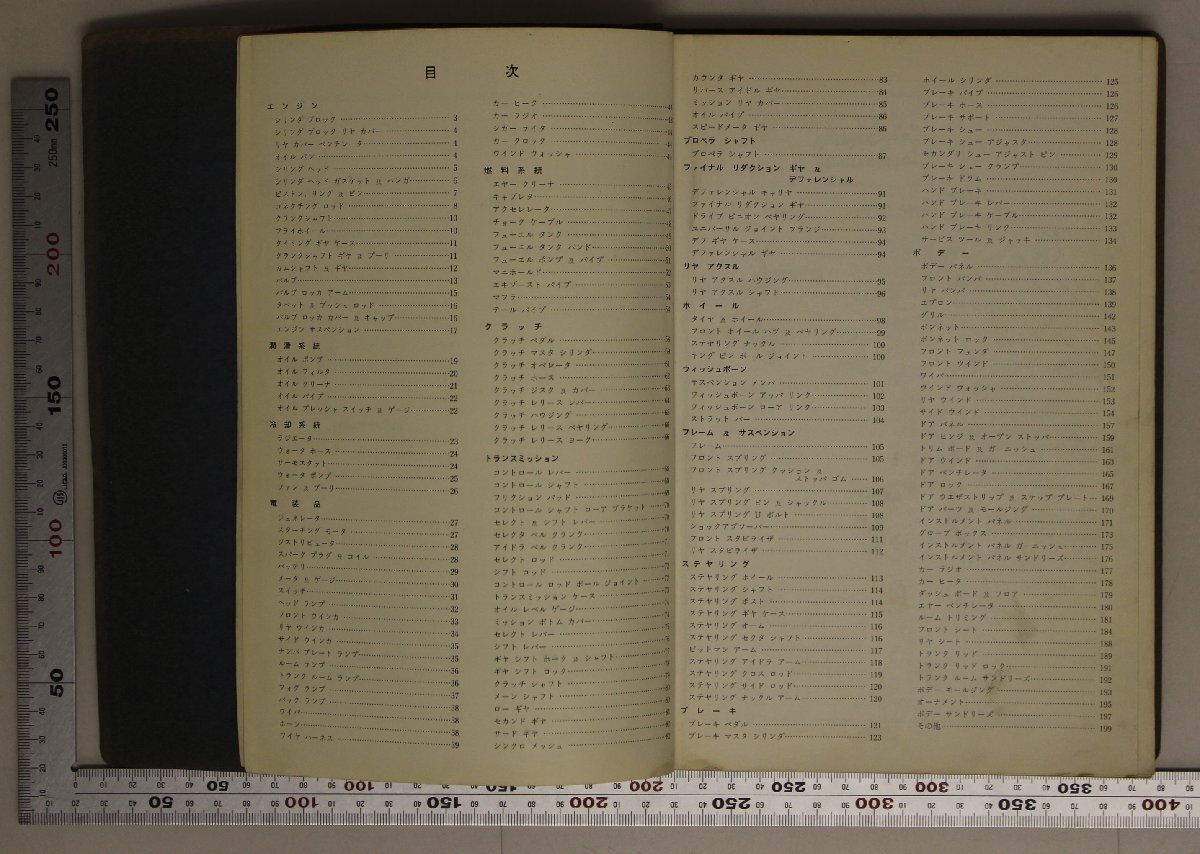 目次
エンジン
シリンダ ブロック 3
シリンダ ブロック リヤ カバー 4
リヤ カバー ベンチレータ 4
オイル パン 4
シリンダ ヘッド 5
シリンダ ヘッド ガスケット 及 ハンガー 6
ピストン, リング 及 ピン 7
コネクチング ロッド 8
クランクシャフト 10
フライホイール 10
タイミング ギヤ ケース 11
クランクシャフト ギヤ 及 プーリ 11
カムシャフト 及 ギヤ 12
バルブ 13
バルブ ロッカ アーム 15
タペット 及 プッシュ ロッド 16
バルブ ロッカ カバー 及 キャップ 16
エンジン サスペンション 17
潤滑系統
オイル ポンプ 19
オイル フィルタ 20
オイル クリーナ 21
オイル パイプ 22
オイル プレッシャ スイッチ 及 ゲージ 22
冷却系統
ラジエータ 23
ウォータ ホース 24
サーモスタット 24
ウォータ ポンプ 25
ファン 及 プーリ 26
電装品
ジェネレータ 27
スターチング モータ 27
ジストリビュータ 28
スパーク プラグ 及 コイル 28
バッテリ 29
メータ 及 ゲージ 30
スイッチ 31
ヘッド ランプ 32
フロント ウインカ 33
リヤ ウインカ 34
サイド ウインカ 35
ナンバ プレート ランプ 35
ルーム ランプ 36
トランク ルーム ランプ 36
フォグ ランプ 37
バック ランプ 38
ワイパ 38
ホーン 38
ワイヤ ハーネス 39
カー ヒータ
カー ラジオ
シガー ライタ
カー クロック
ウインド ウォッシャ
燃料系統
エヤー クリーナ
キャブレタ
アクセレレータ
チョーク ケーブル
フューエル タンク
フューエル タンク バンド
フューエル ポンプ 及 パイプ
マニホールド
エキゾースト パイプ
マフラ
テール パイプ
クラッチ
クラッチ ペダル
クラッチ マスタ シリンダ
クラッチ オペレータ
クラッチ ホース
クラッチ ジスク 及 カバー
クラッチ レリース レバー
クラッチ ハウジング
クラッチ レリース ベヤリング
クラッチ レリース ヨーク
トランスミッション
コントロール レバー
コントロール シャフト
フリクション パッド
コントロール シャフト ローア ブラケット
セレクト 及 シフト レバー
セレクタ ベル クランク
アイドラ ベル クランク
セレクト ロッド
シフト ロッド
コントロール ロッド ボール ジョイント
トランスミッション ケース
オイル レベル ゲージ
ミッション ボトム カバー
セレクト レバー
シフト レバー
ギヤ シフト ホーク 及 シャフト
ギヤ シフト ロック
クラッチ シャフト
メーン シャフト
ロー ギヤ
セカンド ギヤ
サード ギヤ
シンクロ メッシュ
カウンタ ギヤ 83
リバース アイドル ギヤ 84
ミッション リヤ カバー 85
オイル パイプ 86
スピードメータ ギヤ 86
プロペラ シャフト
プロペラ シャフト 87
ファイナル リダクション ギヤ 及
デファレンシャル
デファレンシャル キャリヤ 91
ファイナル リダクション ギヤ 91
ドライブ ピニオン ベヤリング 92
ユニバーサル ジョイント フランジ 93
デフ ギヤ ケース 94
デファレンシャル ギヤ 94
リヤ アクスル
リヤ アクスル ハウジング 95
リヤ アクスル シャフト 96
ホイール
タイヤ 及 ホイール 98
フロント ホイール ハブ 及 ベヤリング 99
ステヤリング ナックル 100
キング ピン ボール ジョイント 100
フィッシュボーン
サスペンション メンバ 101
フィッシュボーン アッパ リンク 102
フィッシュボーン ローア リンク 103
ストラット バー 104
フレーム 及 サスペンション
フレーム 105
フロント スプリング 105
フロント スプリング クッション 及
ストッパ ゴム 106
リヤ スプリング 107
リヤ スプリング ピン 及 シャックル 108
リヤ スプリング U ボルト 108
ショックアブソーバー 109
フロント スタビライザ 111
リヤ スタビライザ 112
ステヤリング
ステヤリング ホイール 113
ステヤリング シャフト 114
ステヤリング ポスト 114
ステヤリング ギヤ ケース 115
ステヤリング オーム 116
ステヤリング セクタ シャフト 116
ピットマン アーム 117
ステヤリング アイドラ アーム 118
ステヤリング クロス ロッド 119
ステヤリング サイド ロッド 120
ステヤリング ナックル アーム 120
ブレーキ
ブレーキ ペダル 121
ブレーキ マスタ シリンダ 123
ホイール シリンダ 125
ブレーキ パイプ 126
ブレーキ ホース 126
ブレーキ サポート 127
ブレーキ シュー 128
ブレーキ シュー アジャスタ 128
セカンダリ シュー アジャスト ピン 129
ブレーキ シュー クランプ 130
ブレーキ ドラム 130
ハンド ブレーキ 131
ハンド ブレーキ レバー 132
ハンド ブレーキ ケーブル 132
ハンド ブレーキ リンク 133
サービス ツール 及 ジャッキ 134
ボデー
ボデー パネル 136
フロント バンパ 137
リヤ バンパ 138
エプロン 139
グリル 142
ボンネット 143
ボンネット ロック 145
フロント フェンダ 147
フロント ウインド 150
ワイパ 151
ウインド ウォッシャ 152
リヤ ウインド 153
サイド ウインド 154
ドア パネル 157
ドア ヒンジ 及 オープン ストッパ 159
トリム ボード 及 ガーニッシュ 161
ドア ウインド 163
ドア ベンチレータ 165
ドア ロック 167
ドア ウエザストリップ 及 ステップ プレート 169
ドア パーツ 及 モールジング 170
インストルメント パネル 171
グローブ ボックス 173
インストルメント パネル ガーニッシュ 175
インストルメント パネル サンドリーズ 176
カー ラジオ 177
カー ヒータ 178
ダッシュ ボード 及 フロア 179
エヤー ベンチレータ 180
ルーム トリミング 181
フロント シート 184
リヤ シート 188
トランク リッド 189
トランク リッド ロック 191
トランク ルーム サンドリーズ 192
ボデー モールジング 193
オーナメント 195
ボデー サンドリーズ 197
その他 199